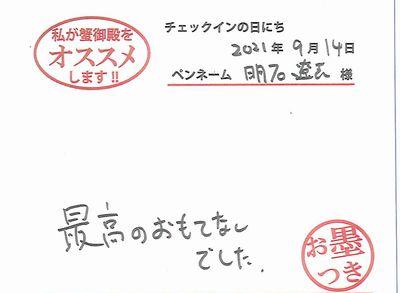 私が蟹御殿を
オススメ
します!!
チェックインの日にち
2021年9月14日
ペンネーム 明石 様
最高のおもてなし
でした.
お墨
つき